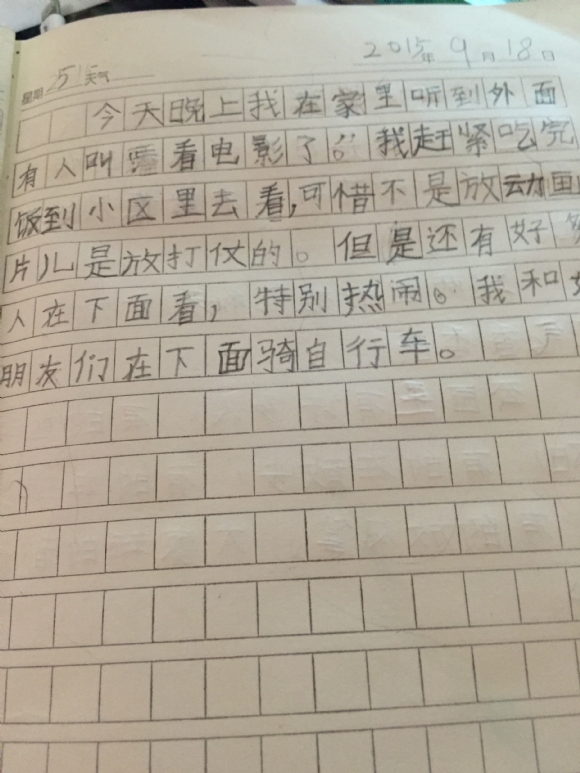 2015年9月18日
星期 5 天气
今天晚上我在家里听到外面
有人叫 看电影了。我赶紧吃完
饭到小区里去看,可惜不是放动画
片儿是放打仗的。但是还有好
人在下面看,特别热闹。我和
朋友们在下面骑自行车。